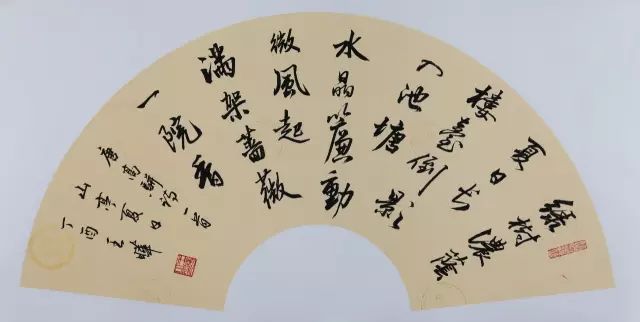 绿樹濃蔭
夏日长
樓臺倒影
入池塘
水晶簾動
微風起
滿架薔薇
一院香
唐高駢詩一首
山亭夏日
丁酉王